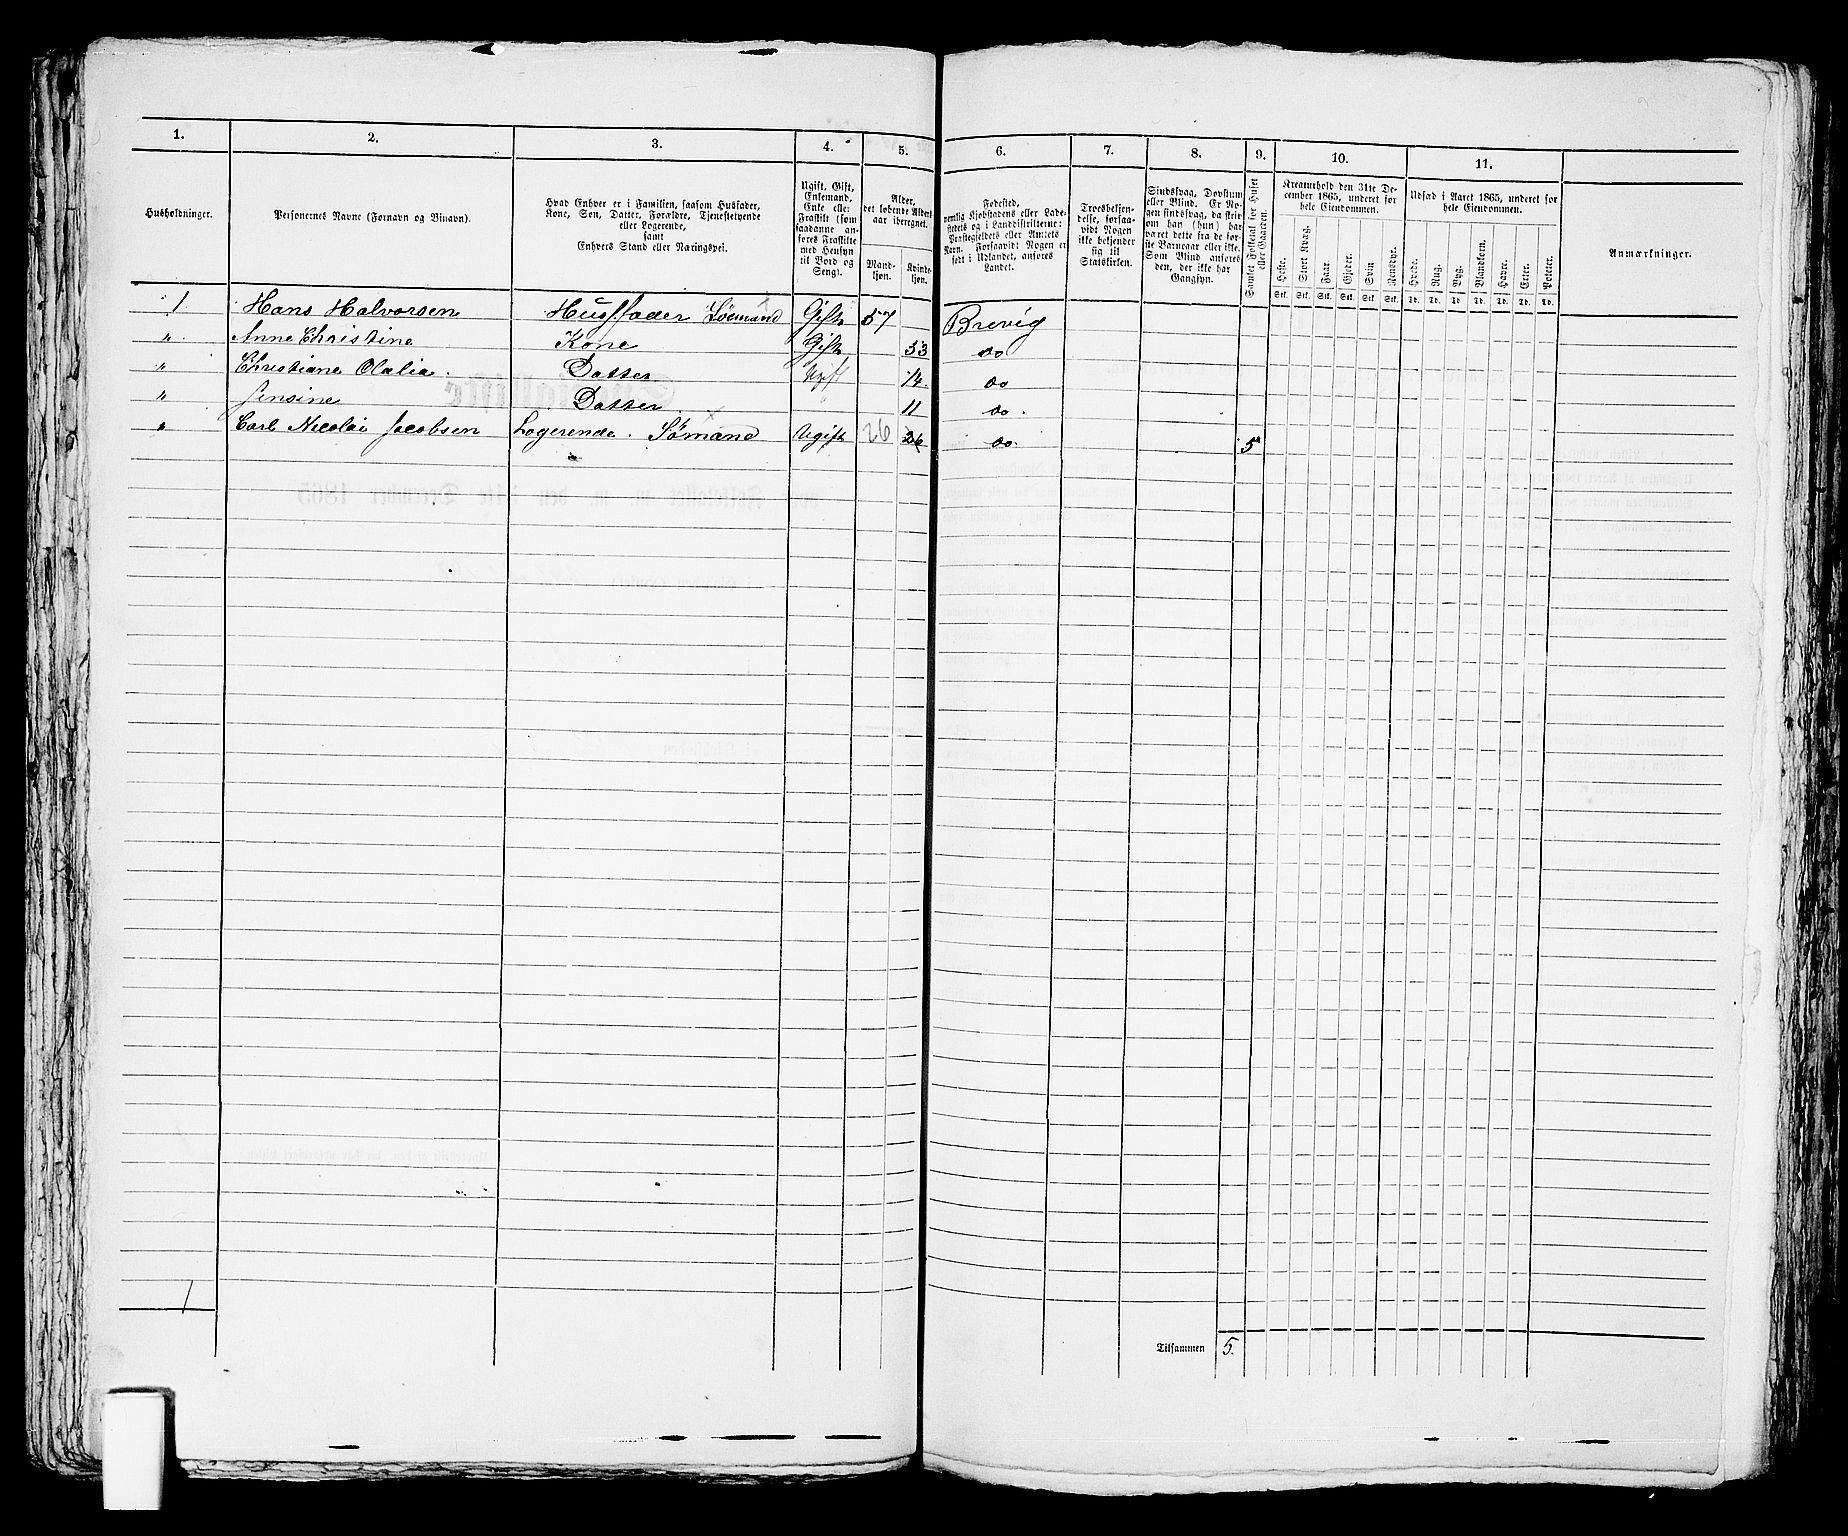 1. 2. 3. 4. 5. 6. 7. 8. 9. 10. 11.
Husholdninger.
Personernes Navne (Fornavn og Binavn).
Hvad Enhver er i Familien, saasom Husfader,
Kone, Søn, Datter, Forældre, Tjenestetyende
eller Logerende,
samt
Enhvers Stand eller Næringsvei.
Ugift, Gift,
Enkemand,
Enke eller
Fraskilt (som
saadanne an-
føres Fraskilte
med Hensyn
til Bord og
Seng).
Alder,
det løbende Alders-
aar iberegnet.
Mand-
kjøn.
Kvinde-
kjøn.
Fødested,
nemlig Kjøbstadens eller Lade-
stedets og i Landdistrikterne:
Præstegjeldets eller Amtets
Navn. Forsaavidt Nogen er
født i Udlandet, anføres
Landet.
Troesbekjen-
delse, forsaa-
vidt Nogen
ikke bekjender
sig til
Statskirken.
Sindssvag, Døvstum
eller Blind. Er No-
gen sindssvag, da skriv
om han (hun) har
været dette fra de før-
ste Barneaar eller ikke.
Som Blind anføres
den, der ikke har
Gangsyn.
Samlet Folketal for Huset
eller Gaarden.
Kreaturhold den 31te De-
cember 1865, underet for
hele Eiendommen.
Heste. Stort Kvæg. Faar. Gjeder. Svin Rensdyr.
Stk. Stk. Stk. Stk. Stk. Stk.
Udsæd i Aaret 1865, underet for
hele Eiendommen.
Hvede. Rug. Byg. Blandkorn. Havre. Erter. Poteter.
Td. Td. Td. Td. Td. Td. Td.
Anmærkninger.
1 Hans Halvorsen Husfader Sømand Gift 57 Brevig
" Anne Christine Kone Gift 53 do
" Christiane Olalia. Datter Ugift 14. do
" Jensine Datter " 11 do.
" Carl Nicolai Jacobsen Logerende. Sømand Ugift 26 26 do. 5
1
Tilsammen 5.